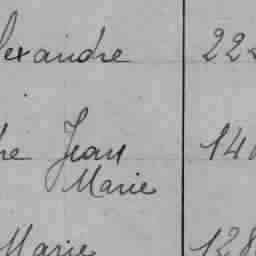 lexandre 22
re Jean 14
Marie
Marie 128